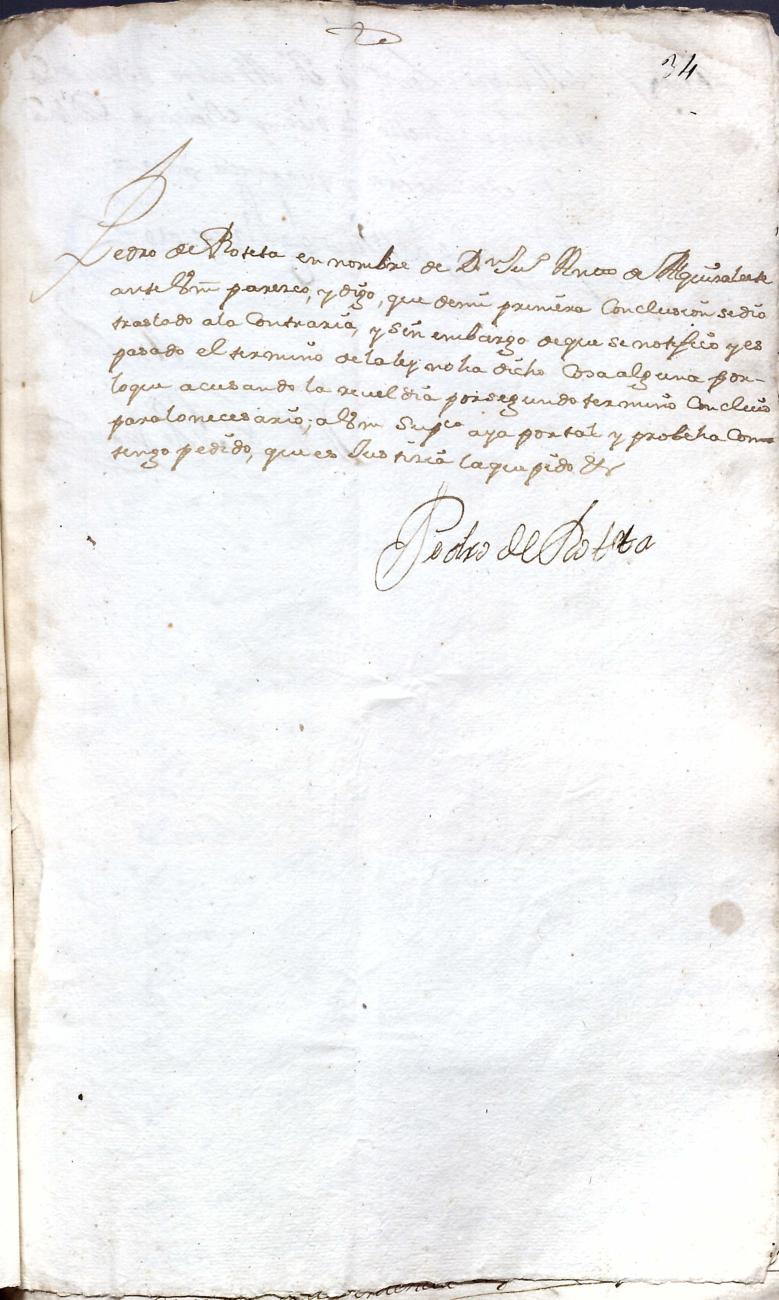 34
Pedro de Roteta en nombre de Dn Juº Anttº de Aguiraleeste
ante Vm parezco, y digo, que de mi primera Conclusion se dio
traslado ala Contraria, y sin embargo de que se notifico y es
pasado el termino de la ley no ha dicho Cosa alguna por-
loque acusando la reveldia por segundo termino Concluio
paralo necesario; a Vm Supco aya portal y probeha Como
tengo pedido, que es Justicia la que pido &ª
Pedro de Roteta